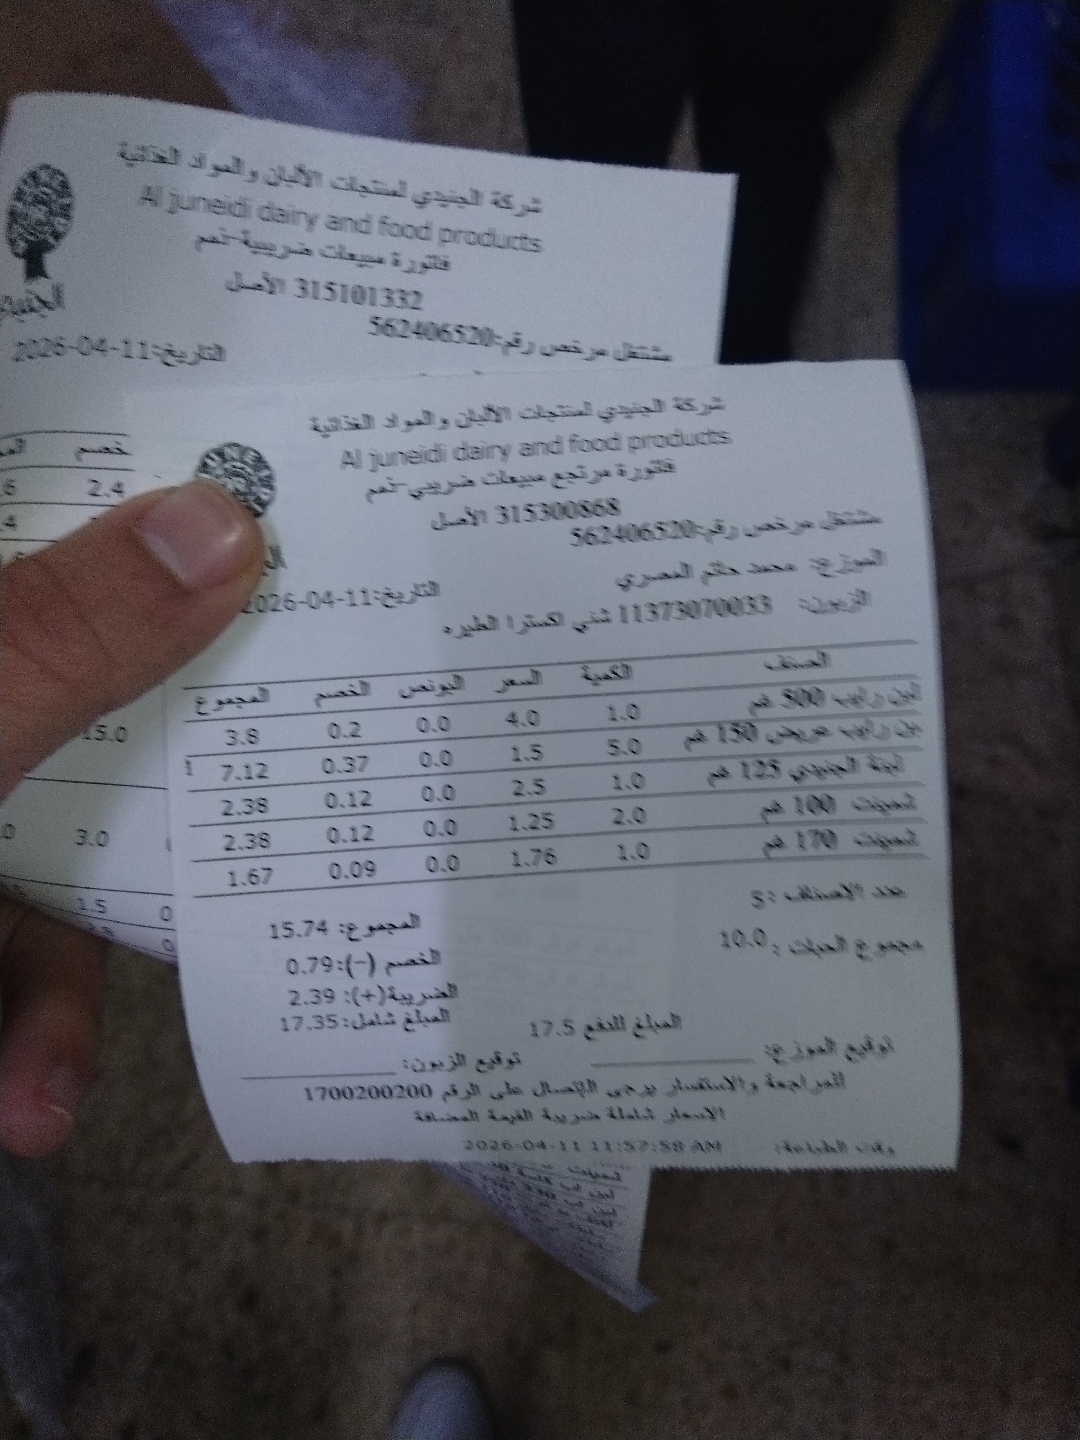 شركة الجنيدي لمنتجات الألبان والمواد الغذائية
Al juneidi dairy and food products
فاتورة مبيعات ضريبية-نعم
315101332 الأصل
مشتغل مرخص رقم:562406520
التاريخ:2026-04-11
خصم
2.4
15.0
3.0
1.5
شركة الجنيدي لمنتجات الألبان والمواد الغذائية
Al juneidi dairy and food products
فاتورة مرتجع مبيعات ضريبي-نعم
315300868 الأصل
مشتغل مرخص رقم:562406520
الموزع: محمد حاتم المصري
التاريخ:2026-04-11
الزبون: 11373070033 شني اكسترا الطيره
الصنف الكمية السعر البونص الخصم المجموع
لبن رايب 500 غم 1.0 4.0 0.0 0.2 3.8
بن رايب عريض 150 غم 5.0 1.5 0.0 0.37 7.12
لبنة الجنيدي 125 غم 1.0 2.5 0.0 0.12 2.38
شمينت 100 غم 2.0 1.25 0.0 0.12 2.38
شمينت 170 غم 1.0 1.76 0.0 0.09 1.67
عدد الاصناف :5
المجموع: 15.74
مجموع الحبات : 10.0
الخصم (-):0.79
الضريبة(+): 2.39
المبلغ شامل:17.35
المبلغ للدفع 17.5
توقيع الموزع:
توقيع الزبون:
للمراجعة والاستفسار يرجى الإتصال على الرقم 1700200200
الاسعار شاملة ضريبة القيمة المضافة
وقت الطباعة: 2026-04-11 11:57:58 AM